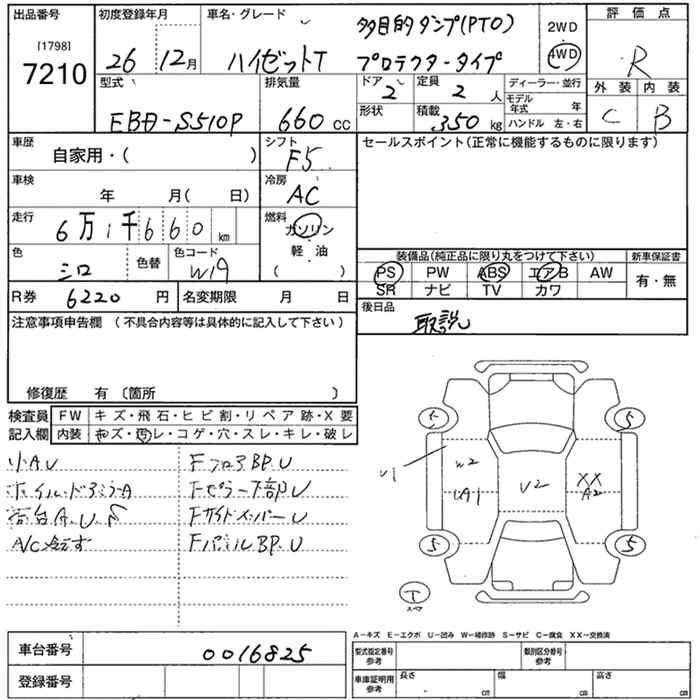 出品番号
[1798]
7210
初度登録年月
26 12月
車名・グレード
ハイゼットT
多目的ダンプ(PTO)
プロテクタータイプ
2WD
4WD
評価点
R
型式
EBD-S510P
排気量
660 cc
ドア
2
定員
2 人
形状
積載
350 kg
ディーラー・並行
モデル年式 年
ハンドル 左・右
外装 内装
C B
車歴
自家用・( )
シフト
F5
セールスポイント(正常に機能するものに限ります)
車検
年 月( 日)
冷房
AC
走行
6万1千660 km
燃料
ガソリン
・
軽油
( )
色
シロ
色替
色コード
W19
装備品(純正品に限り丸をつけて下さい)
新車保証書
PS PW ABS エアB AW
SR ナビ TV カワ
有・無
R券 6220 円
名変期限 月 日
後日品
取説
注意事項申告欄 (不具合内容等は具体的に記入して下さい)
修復歴 有 〔箇所 〕
検査員記入欄
FW キズ・飛石・ヒビ割・リペア跡・X要
内装 キズ・汚レ・コゲ・穴・スレ・キレ・破レ
小AU
FフロアBP.U
ホイル・ドアミラーA
F-ピラー下部U
荷台A.U.S
FサイドメンバーU
FパネルBP.U
5
5
5
U1
W2
UA1
U2
XX
A2
T
スペア
A-キズ E-エクボ U-凹み W-補修跡 S-サビ C-腐食 XX-交換済
車台番号
0016825
登録番号
型式指定番号
参考
類別区分番号
参考
車庫証明用
参考
長さ cm
幅 cm
高さ cm